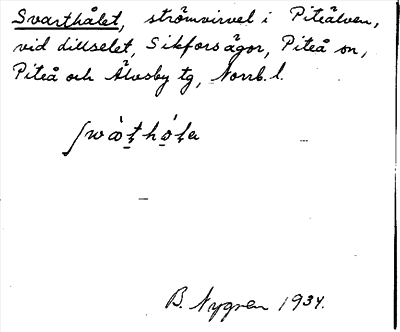 Svarthålet, strömvirvel i Piteälven,
vid dillselet, Sikforsägor, Piteå sn,
Piteå och Älvsby tg, Norrb. l.
B. Nygren 1934.